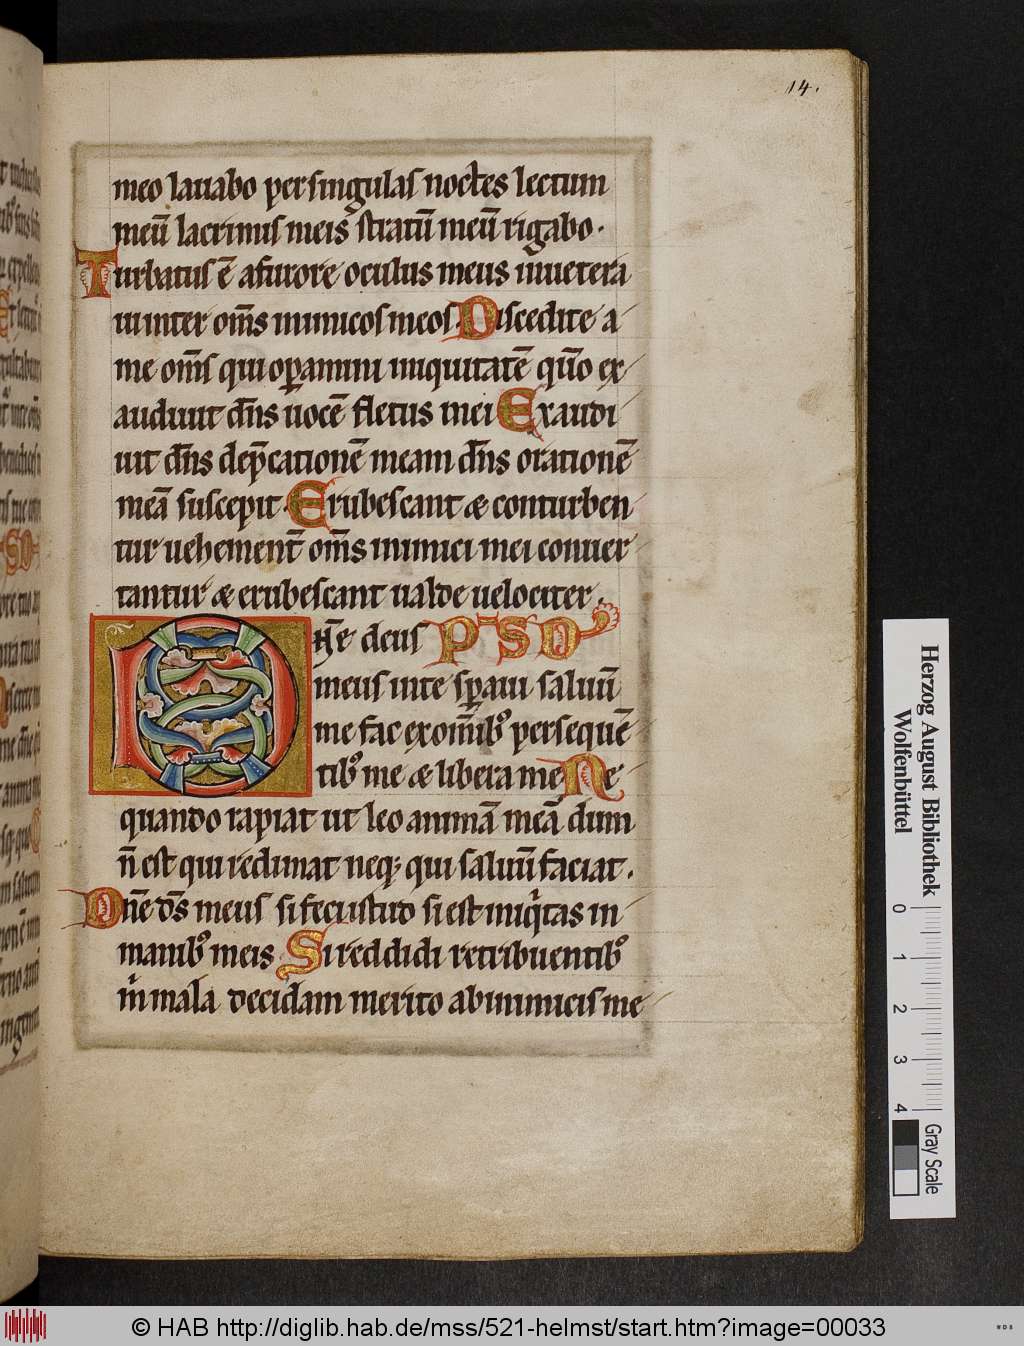 14.
meo lauabo per singulas noctes lectum
meū lacrimis meis stratū meū rigabo.
Turbatus ē a furore oculus meus inuetera
ui inter om̄s inimicos meos. Discedite a
me om̄s qui operamini iniquitatē qūo ex
audiuit dn̄s uocē fletus mei Exaudi
uit dn̄s dep̄cationē meam dn̄s orationē
meā suscepit. Erubescant & conturben
tur uehement̄ om̄s inimici mei conuer
tantur & erubescant ualde uelociter.
Dn̄e deus PSD
meus in te speraui saluū
me fac ex omībꝰ persequē
tibꝰ me & libera me Ne
quando rapiat ut leo animā meā dum
n̄ est qui redimat neq; qui saluū faciat.
Dn̄e ds̄ meus si feci istud si est iniqͥtas in
manibꝰ meis. Si reddidi retribuentibꝰ
mͥ mala decidam merito ab inimicis me
Herzog August Bibliothek
Wolfenbüttel
0 1 2 3 4
Gray Scale
© HAB http://diglib.hab.de/mss/521-helmst/start.htm?image=00033